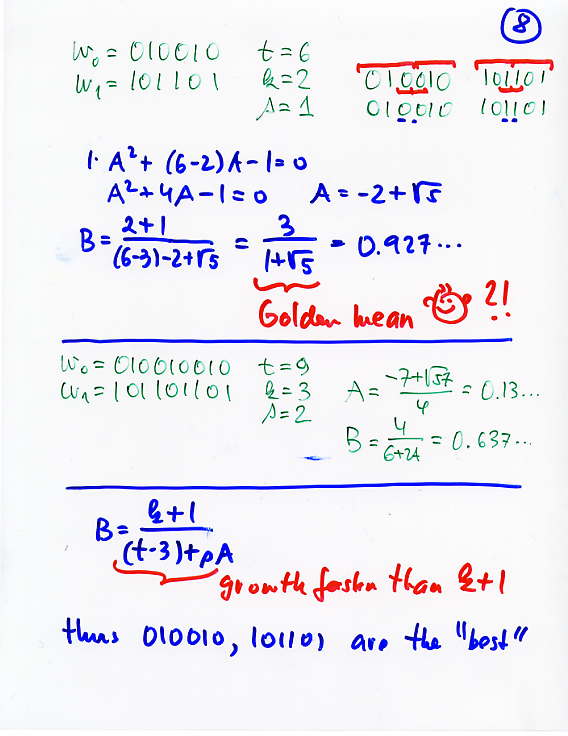 8
w₀ = 010010 t = 6 010010 101101
w₁ = 101101 k = 2 010010 101101
s = 1
1·A² + (6-2)A - 1 = 0
A² + 4A - 1 = 0 A = -2 + √5
B = (2+1)/((6-3)-2+√5) = 3/(1+√5) = 0.927...
Golden mean ?!
w₀ = 010010010 t = 9
w₁ = 101101101 k = 3 A = (-7+√57)/4 = 0.13...
s = 2
B = 4/(6+2A) = 0.637...
B = (k+1)/((t-3)+sA)
growth faster than k+1
thus 010010, 101101 are the "best"